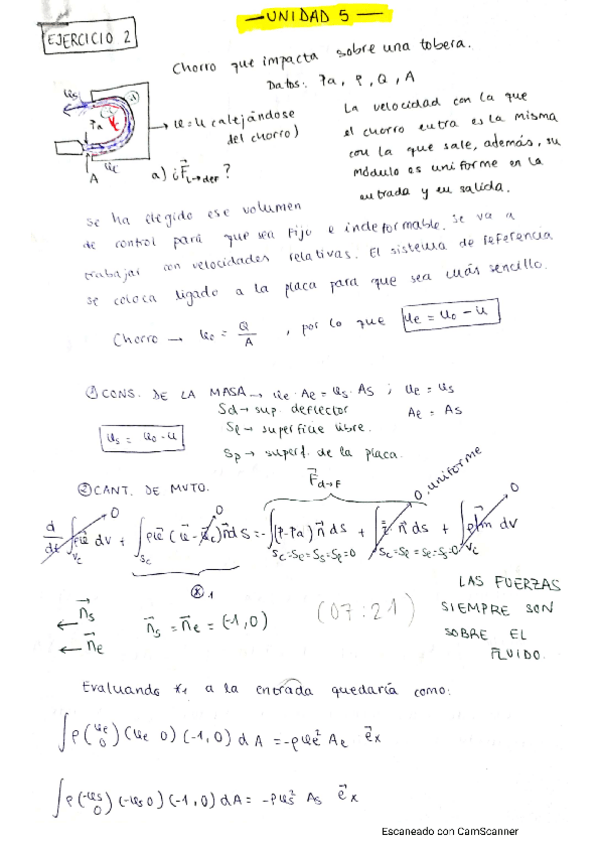 — UNIDAD 5 —
EJERCICIO 2
Chorro que impacta sobre una tobera.
Datos: Pa, ρ, Q, A
Pa
A
→ u = u (alejándose del chorro)
a) ¿ F⃗L→def ?
La velocidad con la que
el chorro entra es la misma
con la que sale, además, su
módulo es uniforme en la
entrada y en salida.
Se ha elegido ese volumen
de control para que sea fijo e indeformable. Se va a
trabajar con velocidades relativas. El sistema de referencia
se coloca ligado a la placa para que sea más sencillo.
Chorro → u₀ = Q/A , por lo que ue = u₀ - u
① CONS. DE LA MASA → ue · Ae = us · As ; ue = us
Ae = As
Sd → sup. deflector
Sl → superficie libre.
Sp → superf. de la placa.
us = u₀ - u
② CANT. DE MVTO.
F⃗d→F
0, uniforme
d/dt ∫Vc ρu⃗ dv + ∫Sc ρu⃗ (u⃗ - u⃗c) n⃗ dS = -∫(P-Pa) n⃗ dS + ∫ n⃗ ds + ∫Vc ρ dv
⊛1
n⃗s
n⃗e
n⃗s = n⃗e = (-1,0)
(07:21)
LAS FUERZAS
SIEMPRE SON
SOBRE EL
FLUIDO.
Evaluando *1 a la entrada quedaría como:
∫ρ(ue 0)(ue 0)(-1,0) dA = -ρue² Ae e⃗x
∫ρ(-us 0)(-us 0)(-1,0) dA = -ρus² As e⃗x
Escaneado con CamScanner